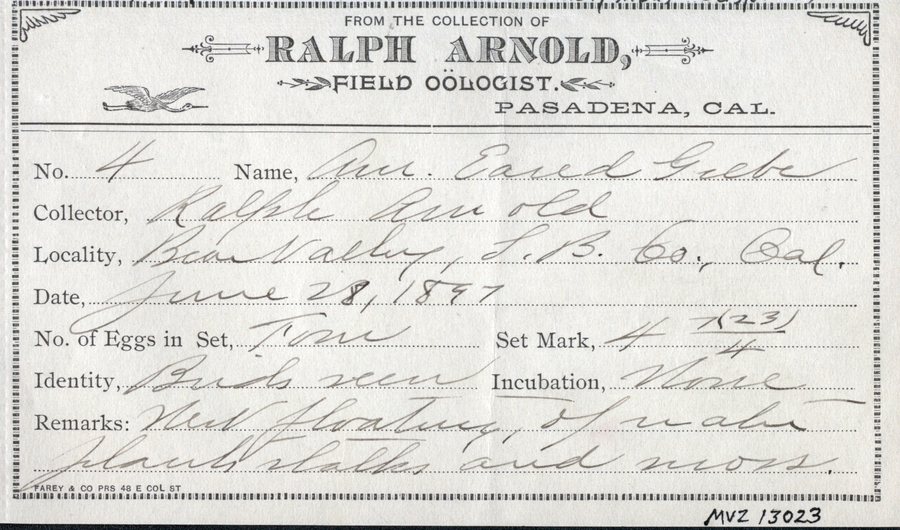 FROM THE COLLECTION OF
RALPH ARNOLD,
FIELD OÖLOGIST.
PASADENA, CAL.
No. 4 Name, Am. Eared Grebe
Collector, Ralph Arnold
Locality, Bear Valley, S. B. Co., Cal.
Date, June 28, 1897
No. of Eggs in Set, Four Set Mark, 4 7(23)/4
Identity, Birds seen Incubation, None
Remarks: Nest floating, of water
plants stalks and moss.
FAREY & CO PRS 48 E COL ST
MVZ 13023